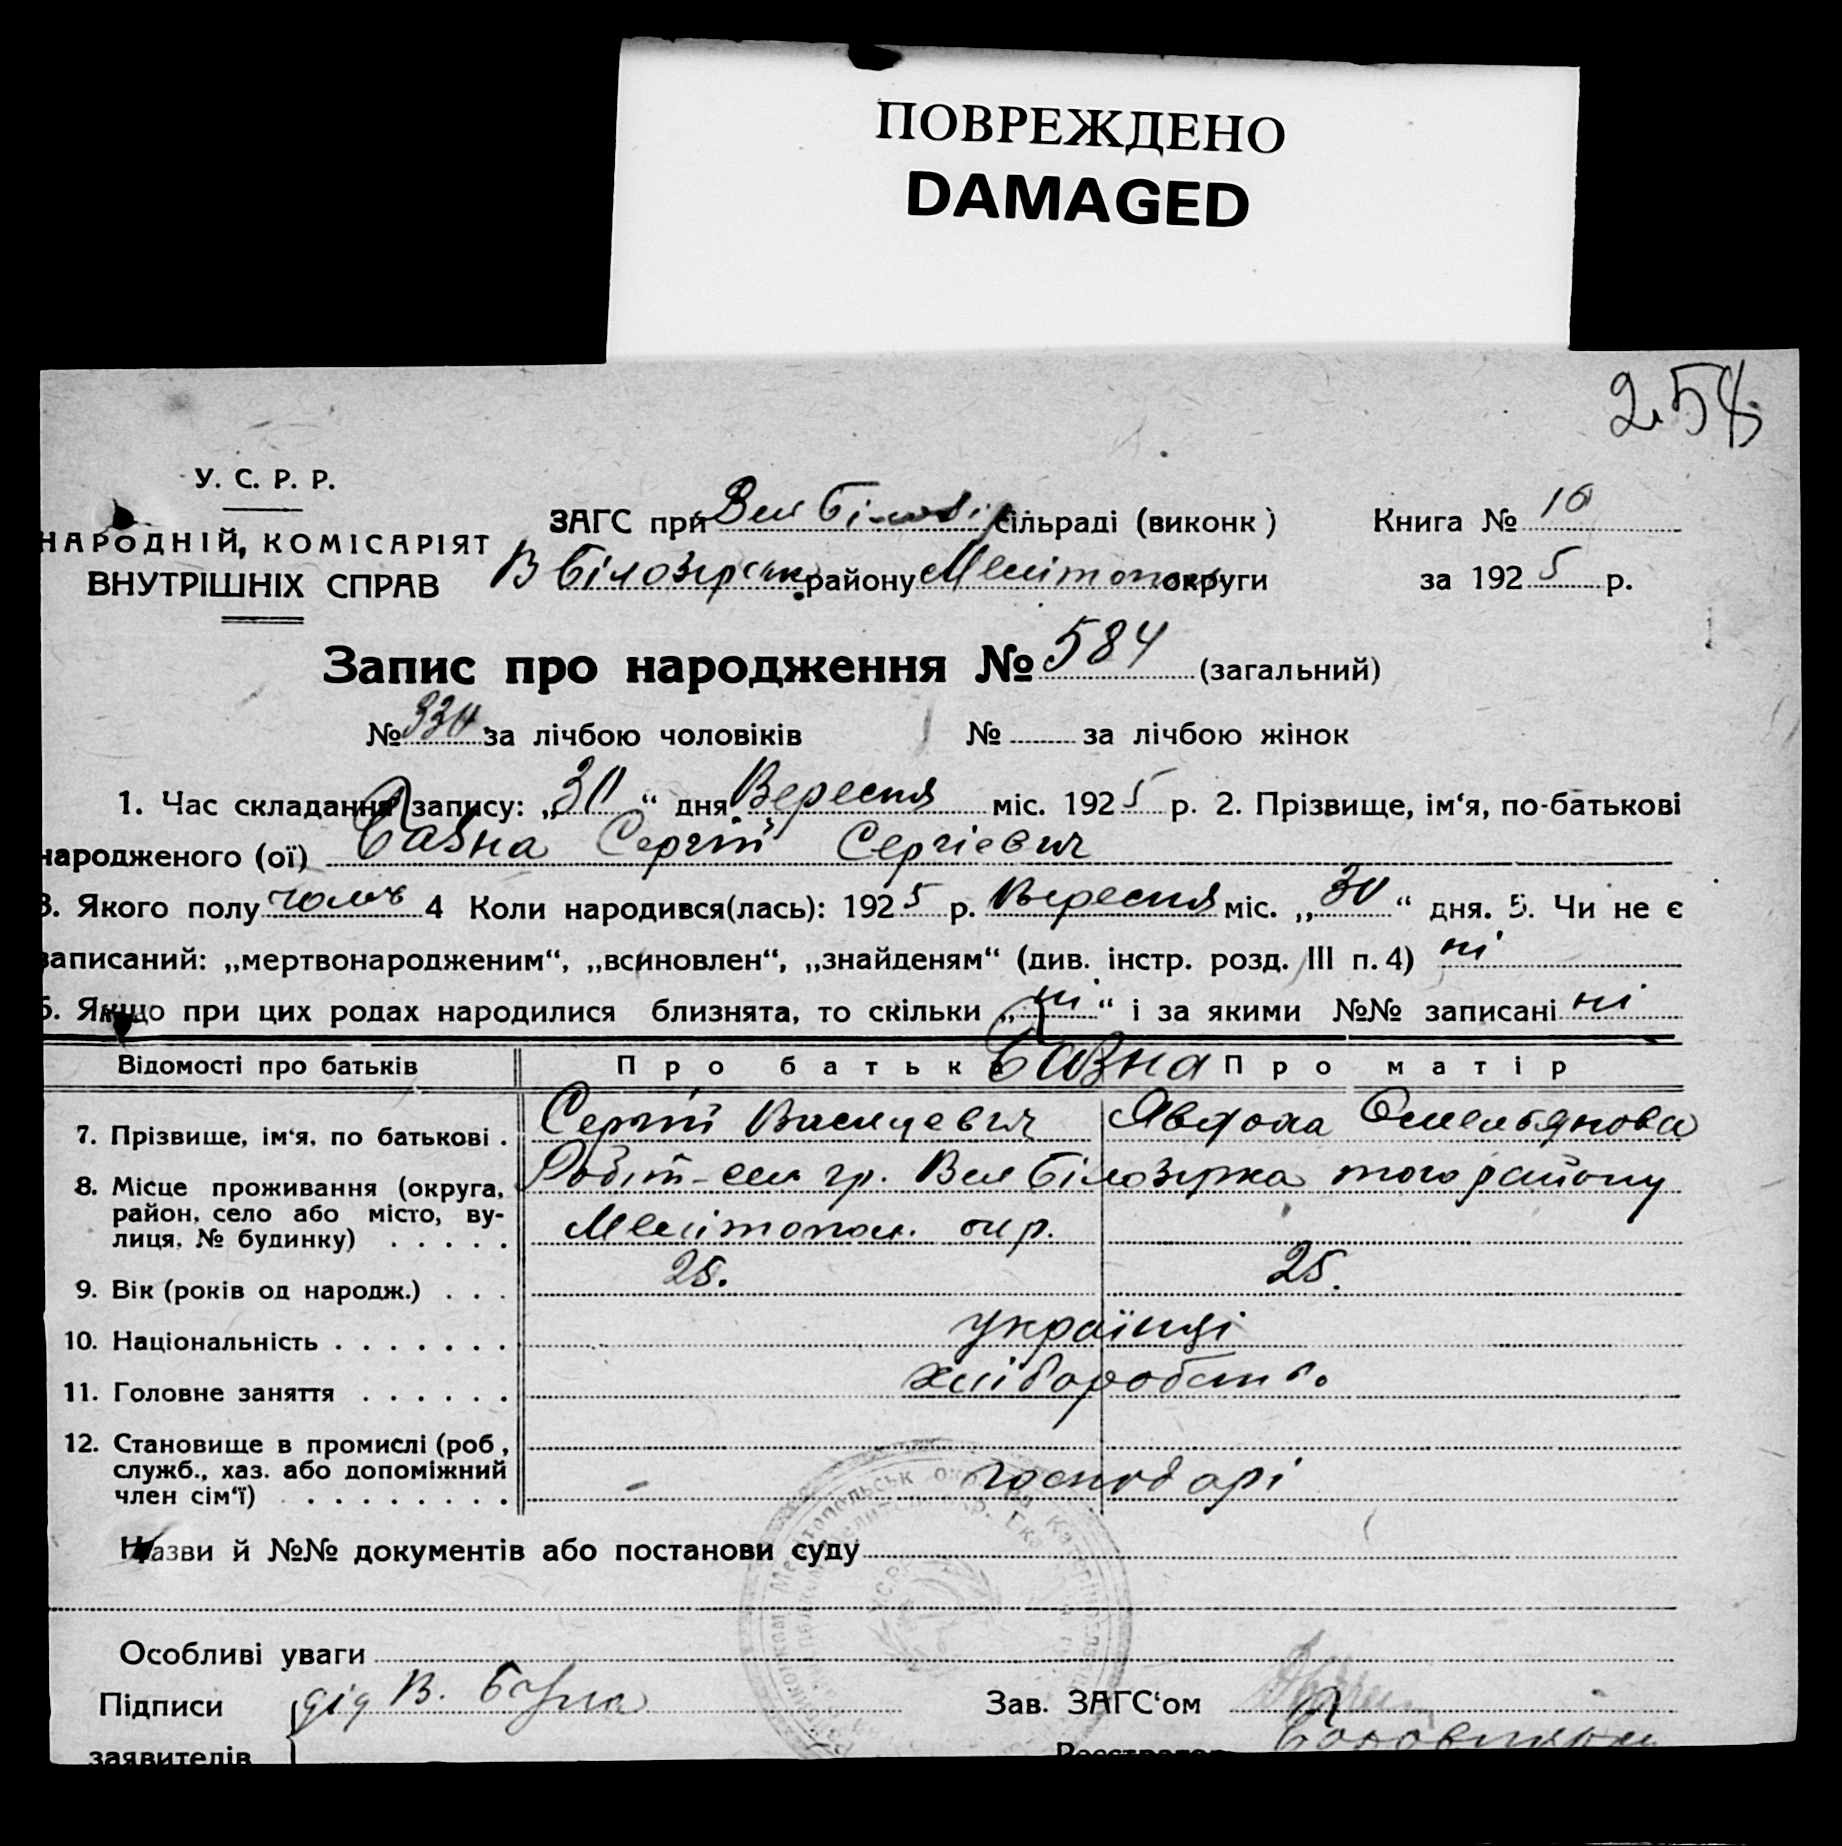 ПОВРЕЖДЕНО
DAMAGED
258
У. С. Р. Р.
НАРОДНІЙ, КОМІСАРІЯТ
ВНУТРІШНІХ СПРАВ
ЗАГС при Вел Білозір сільраді (виконк) Книга № 16
В Білозірськ району Мелітопол округи за 1925 р.
Запис про народження № 584 (загальний)
№ 330 за лічбою чоловіків № за лічбою жінок
1. Час складання запису: „30“ дня Вересня міс. 1925 р. 2. Прізвище, ім‘я, по-батькові
народженого (ої) Базна Сергій Сергієвич
3. Якого полу чолов 4 Коли народився(лась): 1925 р. Вересня міс. „30“ дня. 5. Чи не є
записаний: „мертвонародженим“, „всиновлен“, „знайденям“ (див. інстр. розд. III п. 4) ні
6. Якщо при цих родах народилися близнята, то скільки „ні“ і за якими №№ записані ні
Відомості про батьків Про батьк Базна Про матір
7. Прізвище, ім‘я, по батькові . Сергій Васильевич Явдоха Омельянова
8. Місце проживання (округа, район, село або місто, вулиця, № будинку) . . . . . Робіт-сел гр. Вел Білозірка того району
Мелітопол. окр.
9. Вік (років од народж.) . . . 25. 25.
10. Національність . . . . . . . українці
11. Головне заняття . . . . . . хліборобств.
12. Становище в промислі (роб,
служб., хаз. або допоміжний
член сім‘ї) . . . . . . . . - господарі
Назви й №№ документів або постанови суду
Особливі уваги
Підписи дід В. Базна Зав. ЗАГС‘ом
заявителів Реєстратор